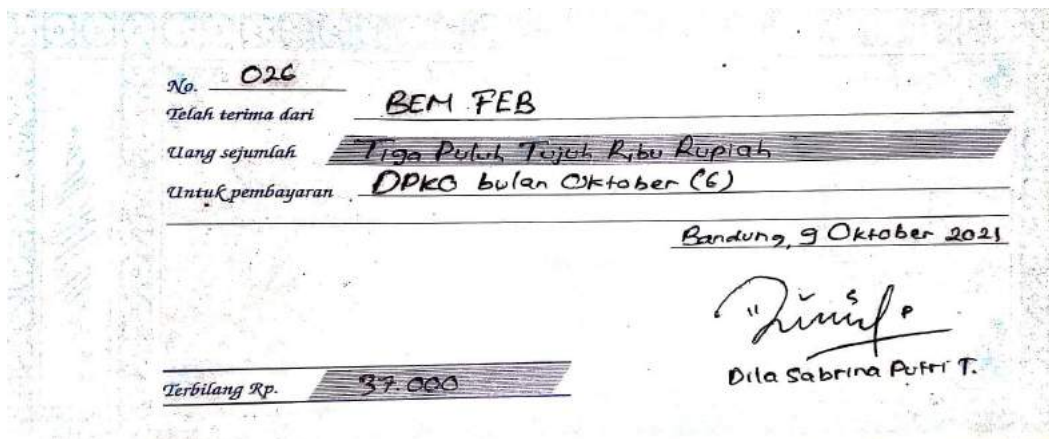 No. 026
Telah terima dari BEM FEB
Uang sejumlah Tiga Puluh Tujuh Ribu Rupiah
Untuk pembayaran DPKO bulan Oktober (6)
Bandung, 9 Oktober 2021
Dila Sabrina Putri T.
Terbilang Rp. 37.000